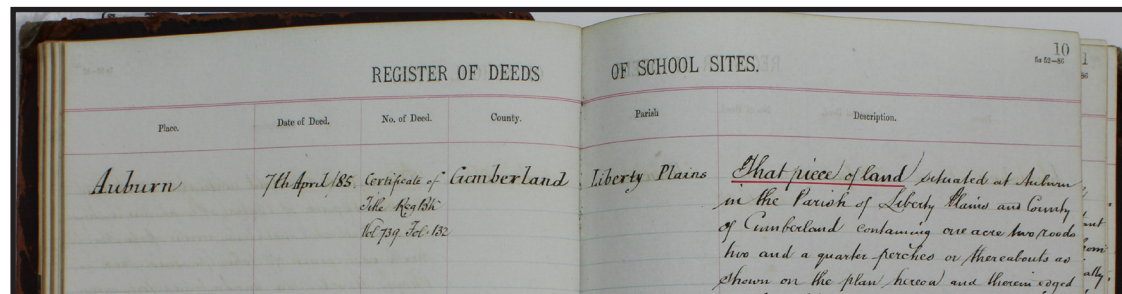 10
5a 52—86
REGISTER OF DEEDS OF SCHOOL SITES.
Place. Date of Deed. No. of Deed. County. Parish Description.
Auburn 7th April /85. Certificate of Cumberland Liberty Plains That piece of land situated at Auburn
Title Reg Bk in the Parish of Liberty Plains and County
Vol 739. Fol. 132 of Cumberland containing one acre two roods
two and a quarter perches or thereabouts as
shown on the plan hereon and therein edged